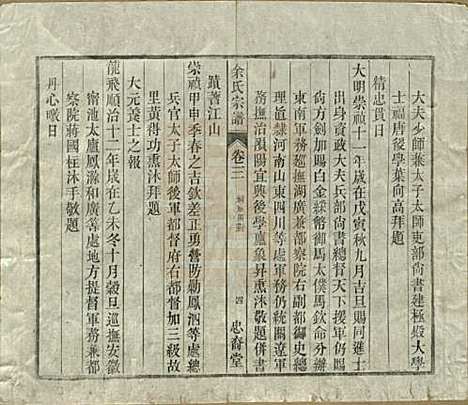 大夫少師兼太子太師吏部尚書建極殿大學
士福唐後學葉向高拜題
精忠貫日
大明崇禎十一年歲在戊寅秋九月吉旦賜同進士
出身資政大夫兵部尚書總督天下援軍仍賜
尙方劍加賜白金綵幣御馬太僕馬欽命分辦
中原軍務廵撫湖廣兼都察院右副都御史總
理直隸河南山東四川等處軍務仍統關遼軍
務撫治鄖陽宜興後學盧象昇熏沐敬題併書
余氏宗譜
卷三
四
忠裔堂
蹟著江山
崇禎甲申季春之吉欽差正勇營防勦鳳泗等處總
兵官太子太師後軍都督府右都督加三級故
里黃得功熏沐拜題
大元養士之報
龍飛順治十二年歲在乙未冬十月穀旦巡撫安徽
甯池太廬鳳滁和廣等處地方提督軍務兼都
察院蔣國柱沐手敬題
丹心暾日